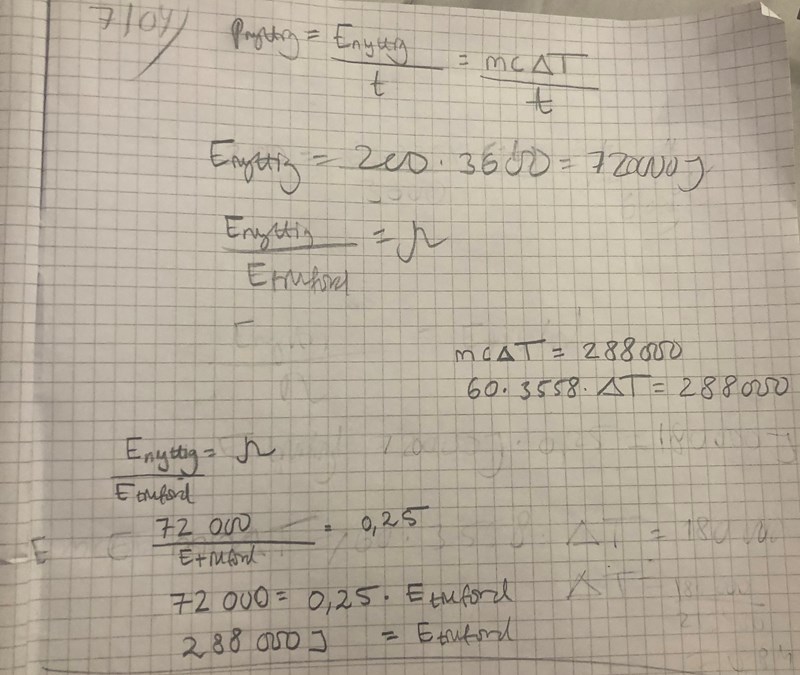 7104
Pnyttig = Enyttig / t = mcΔT / t
Enyttig = 200 · 3600 = 720000J
Enyttig / Etillförd = η
mcΔT = 288000
60 · 3558 · ΔT = 288000
Enyttig / Etillförd = η
72 000 / Etillförd = 0,25
72 000 = 0,25 · Etillförd
288 000 J = Etillförd